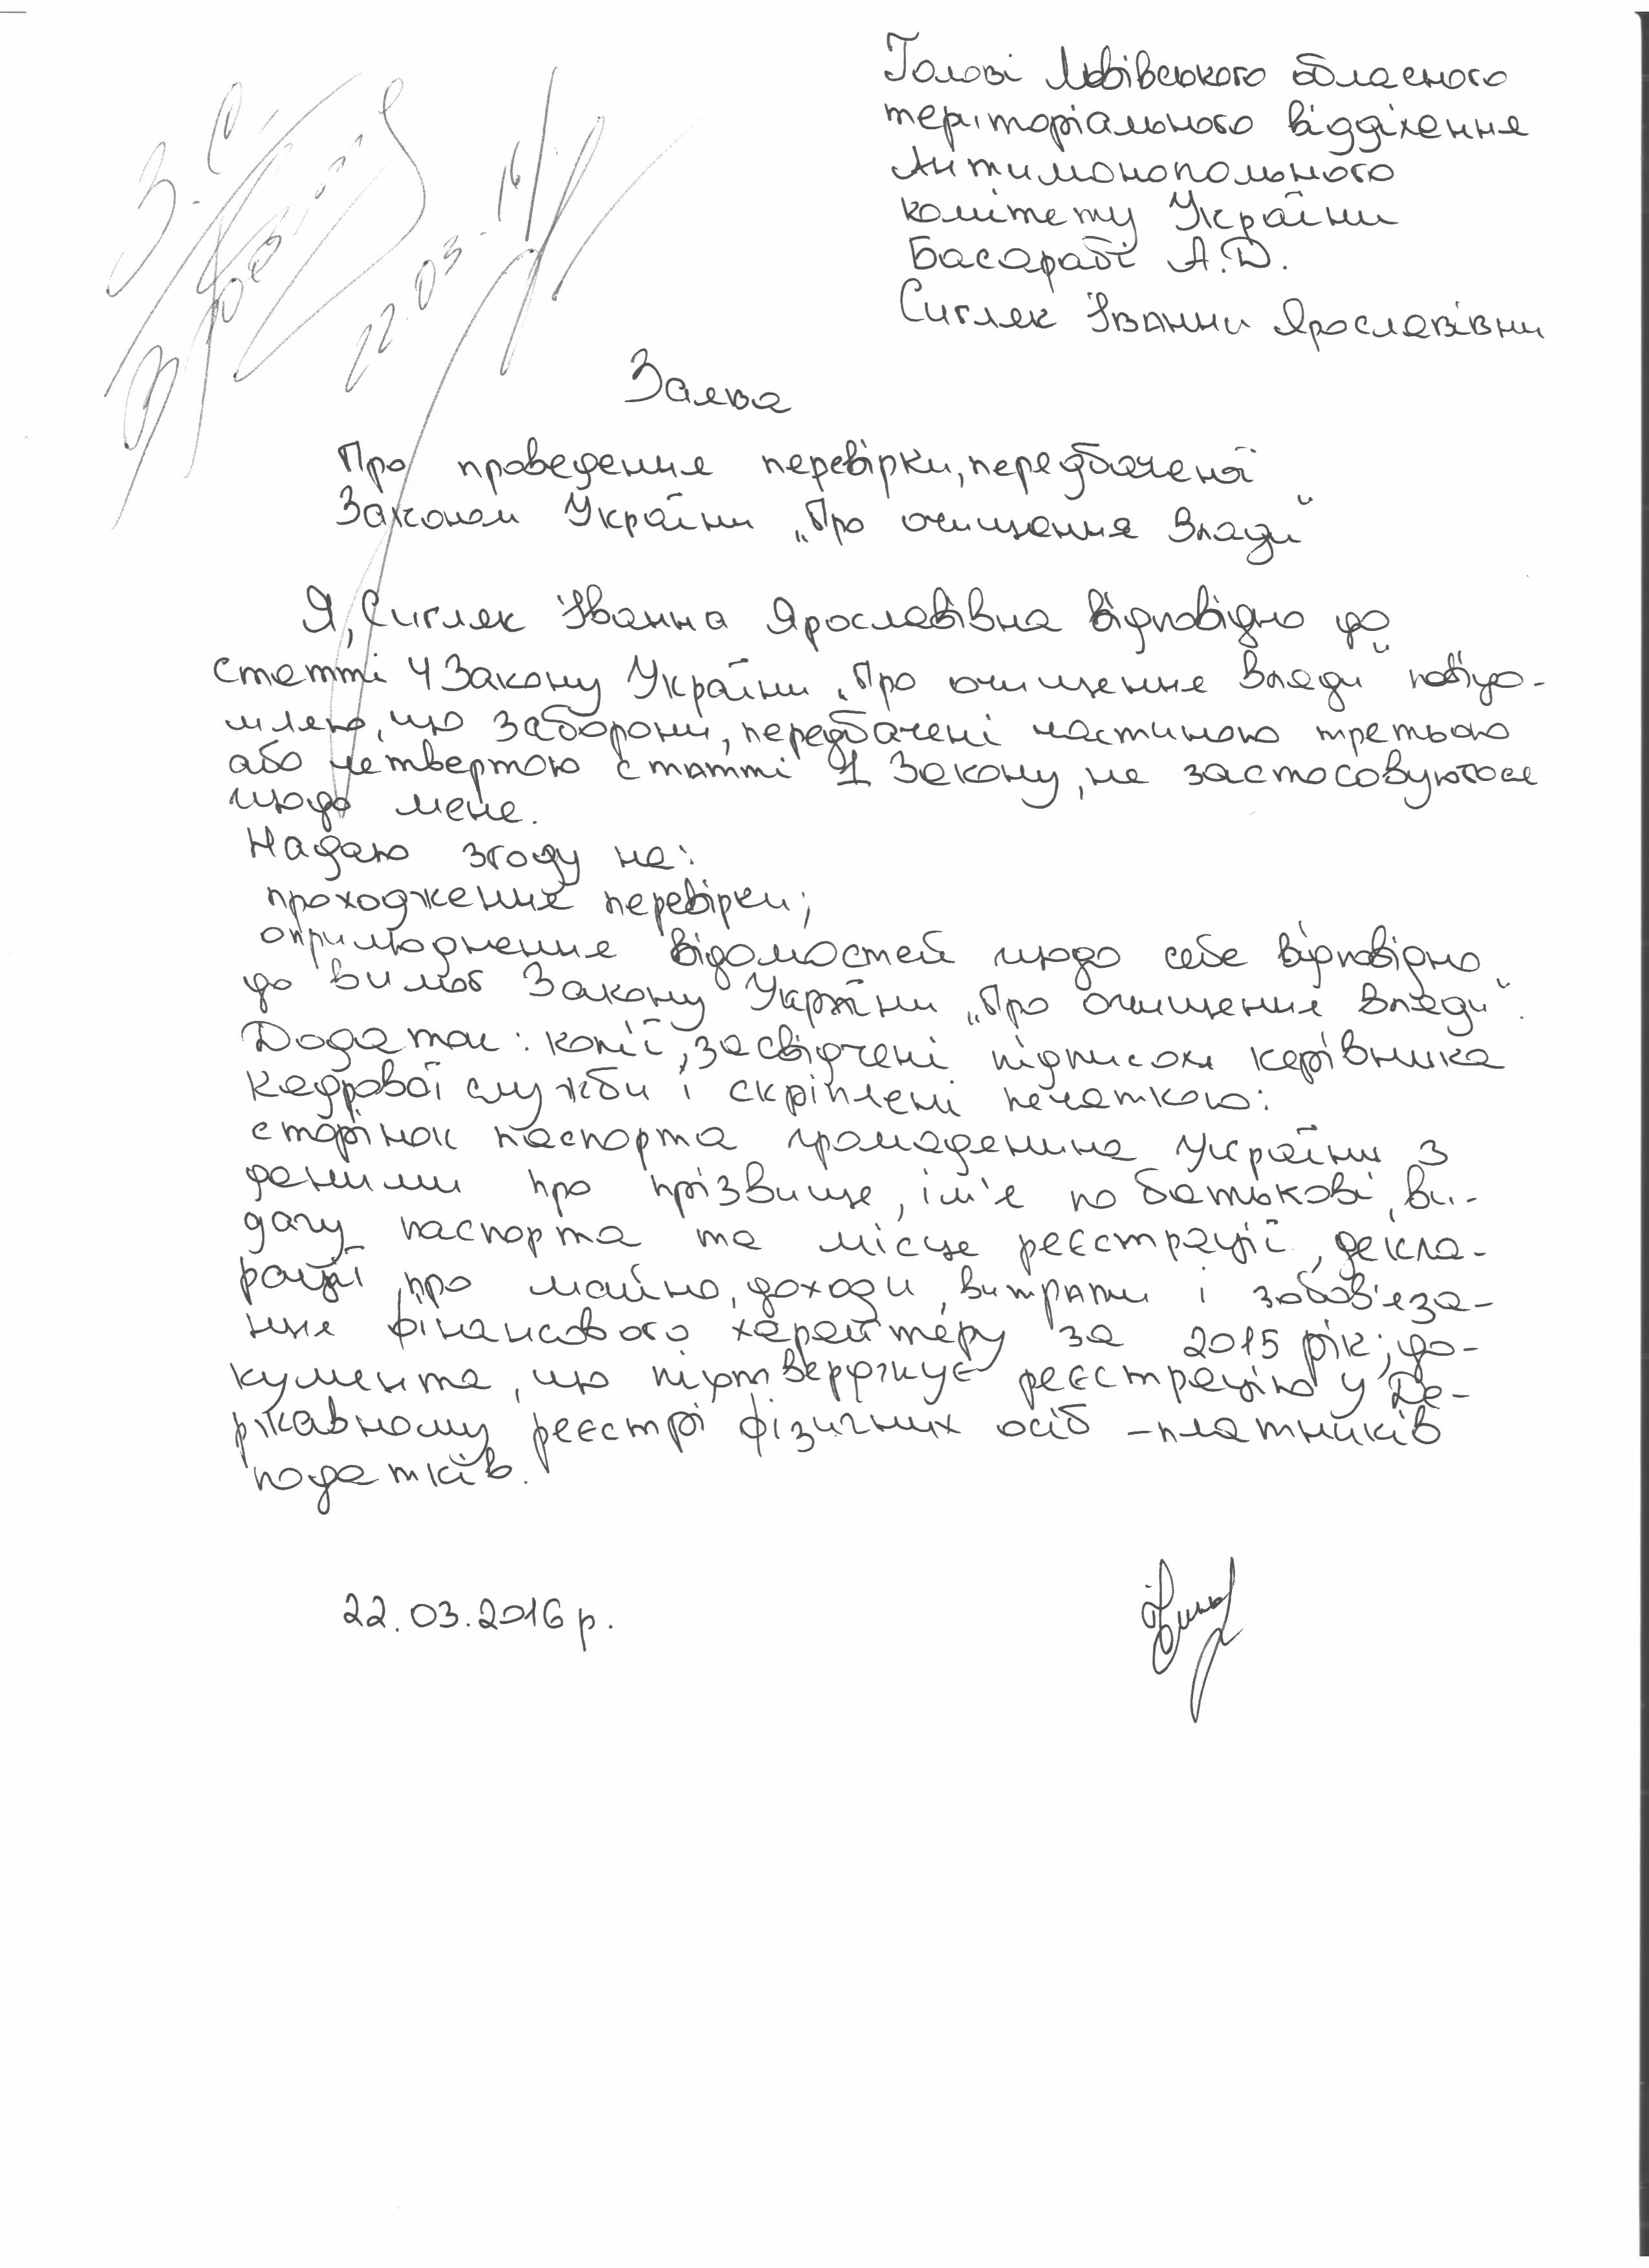 Голові Львівського обласного
територіального відділення
Антимонопольного
комітету України
Басарабі А.Д.
Сигляк Іванни Ярославівни
22.03.16
Заява
Про проведення перевірки, передбаченої
Законом України „Про очищення влади"
Я, Сигляк Іванна Ярославівна відповідно до
статті 4 Закону України „Про очищення влади" повідо-
мляю, що заборони, передбачені частиною третьою
або четвертою статті 1 Закону, не застосовуються
щодо мене.
Надаю згоду на:
проходження перевірки;
оприлюднення відомостей щодо себе відповідно
до вимог Закону України „Про очищення влади".
Додатки: копії, засвідчені підписом керівника
кадрової служби і скріплені печаткою:
сторінок паспорта громадянина України з
даними про прізвище, ім'я по батькові, ви-
дачу паспорта та місце реєстрації, декла-
рації про майно, доходи, витрати і зобов'яза-
ння фінансового характеру за 2015 рік; до-
кумента, що підтверджує реєстрацію у Де-
ржавному реєстрі фізичних осіб - платників
податків.
22.03.2016 р.